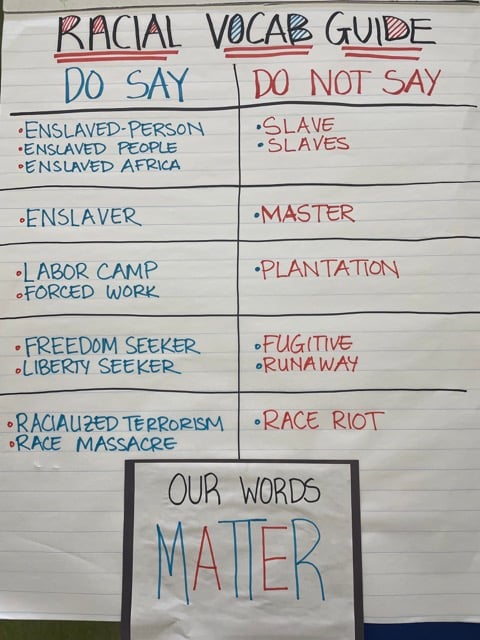 RACIAL VOCAB GUIDE
DO SAY
DO NOT SAY
•ENSLAVED-PERSON
•ENSLAVED PEOPLE
•ENSLAVED AFRICA
•SLAVE
•SLAVES
•ENSLAVER
•MASTER
•LABOR CAMP
•FORCED WORK
•PLANTATION
•FREEDOM SEEKER
•LIBERTY SEEKER
•FUGITIVE
•RUNAWAY
•RACIALIZED TERRORISM
•RACE MASSACRE
•RACE RIOT
OUR WORDS
MATTER